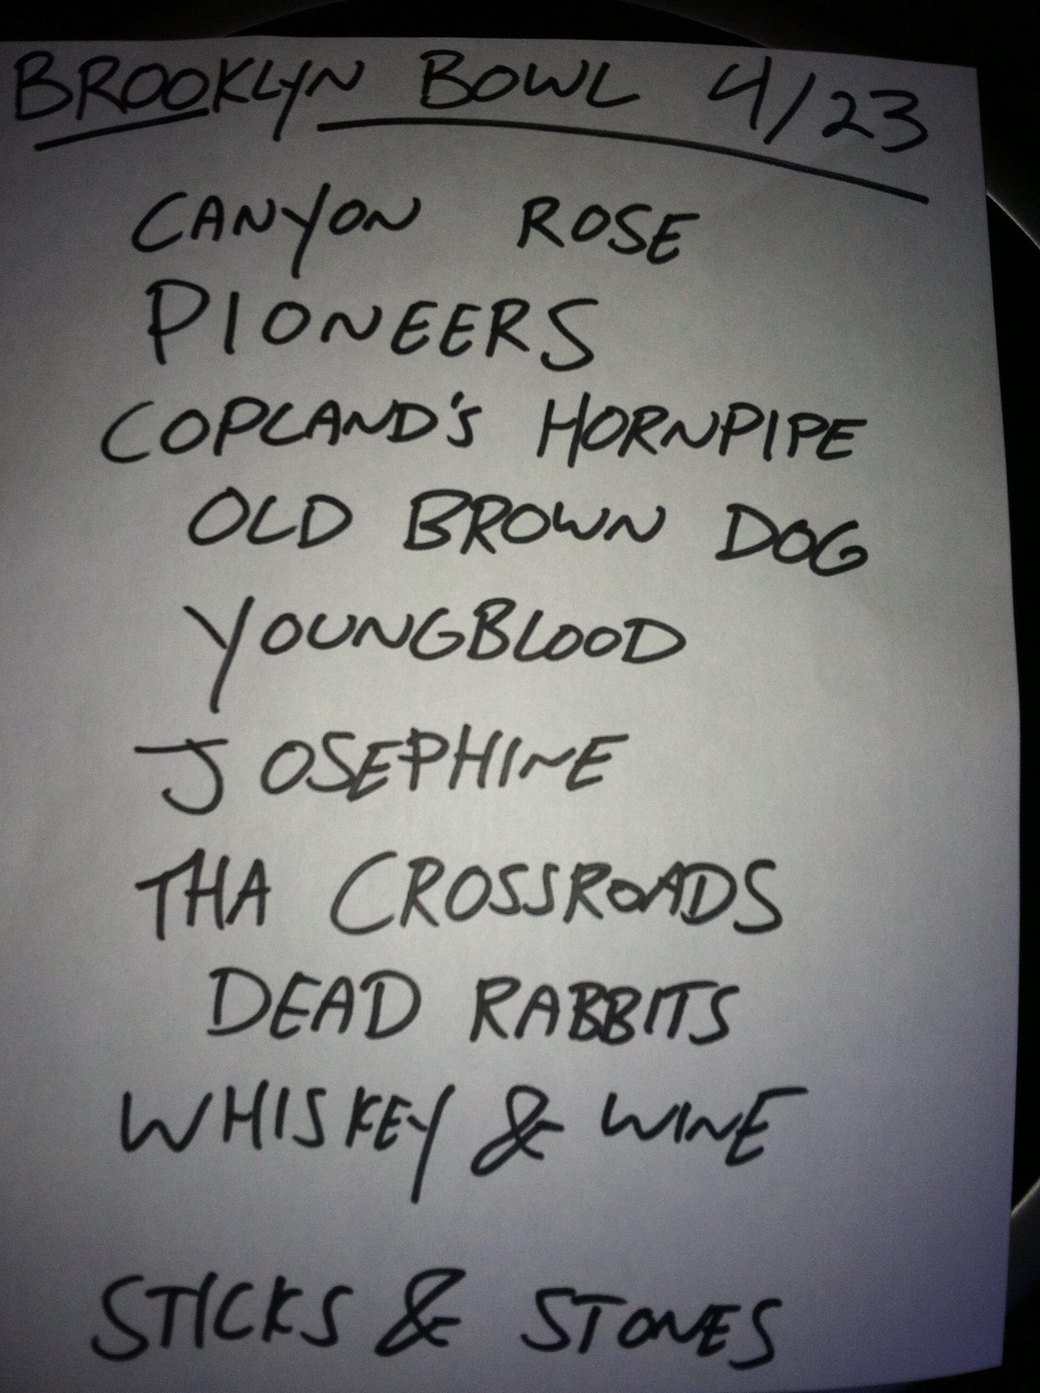 BROOKLYN BOWL 4/23
CANYON ROSE
PIONEERS
COPLAND'S HORNPIPE
OLD BROWN DOG
YOUNGBLOOD
JOSEPHINE
THA CROSSROADS
DEAD RABBITS
WHISKEY & WINE
STICKS & STONES